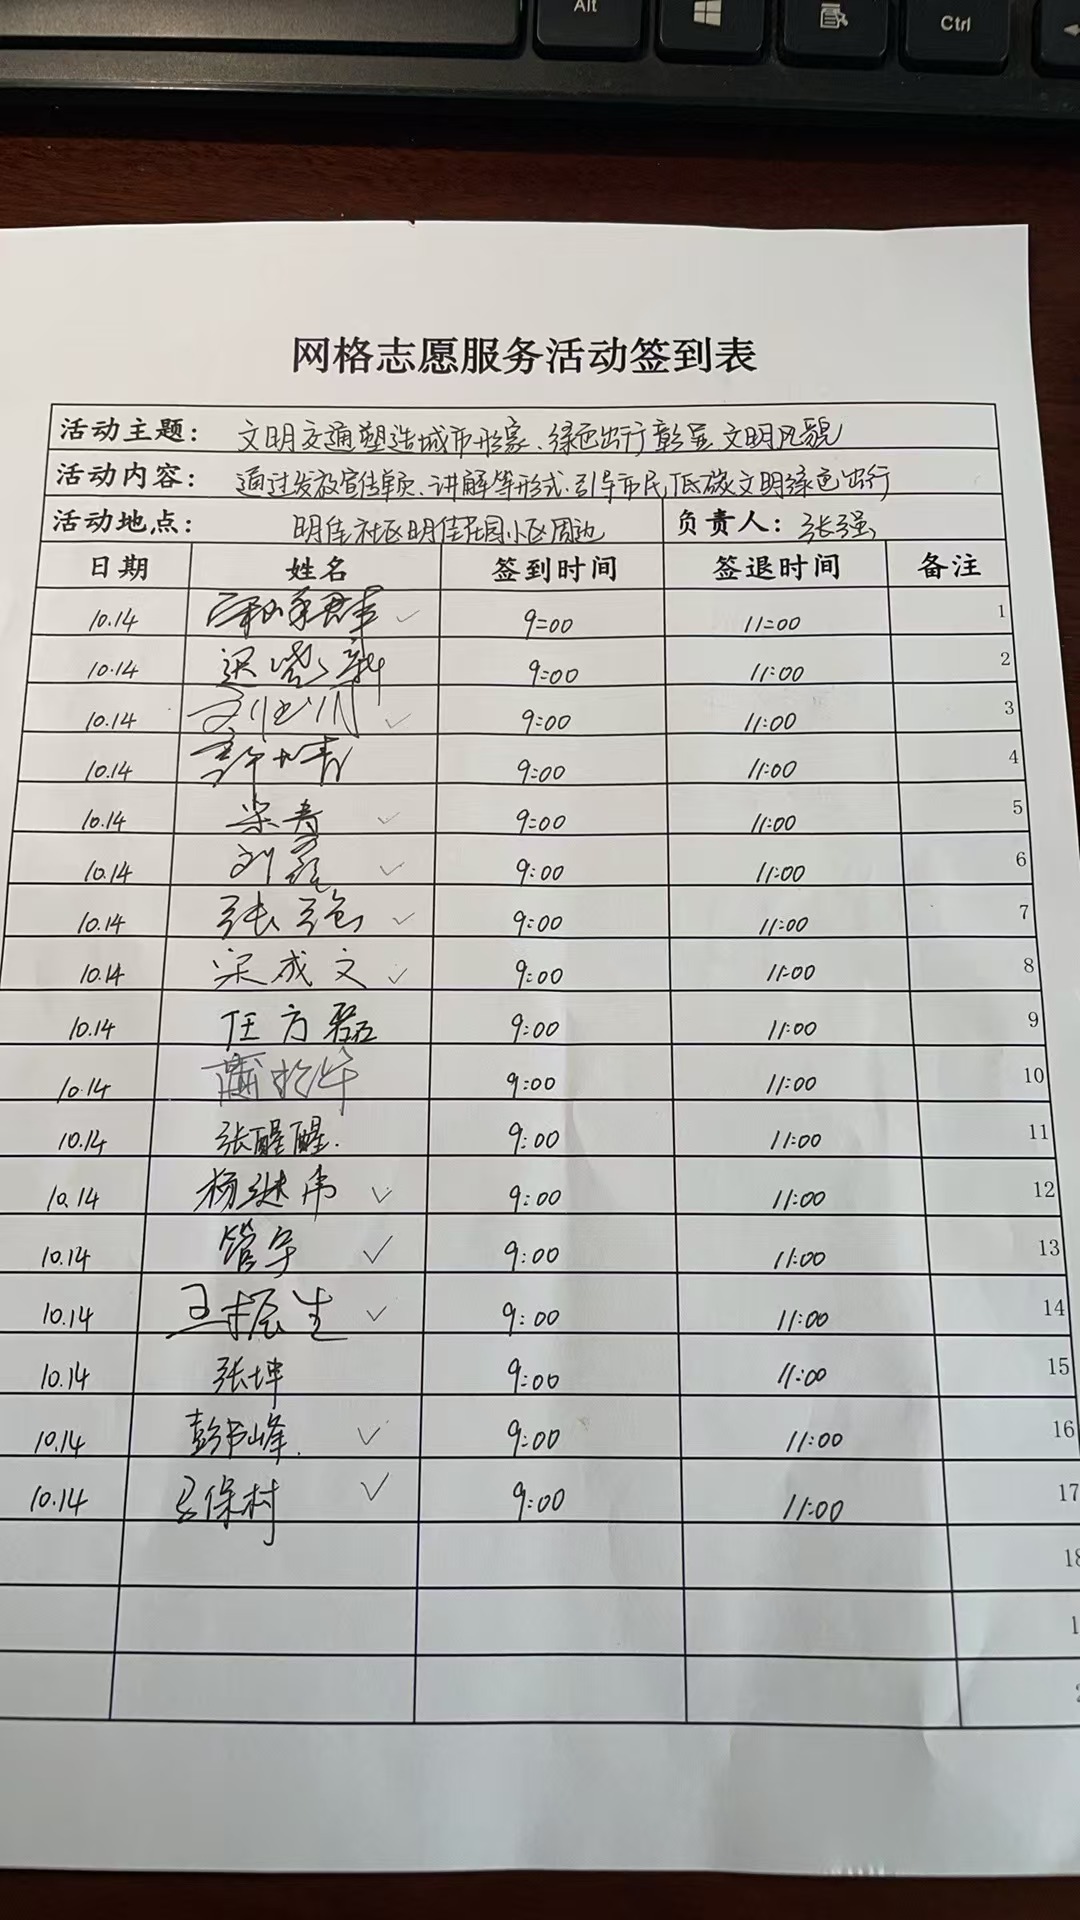 Alt
Ctrl
网格志愿服务活动签到表
活动主题: 文明交通塑造城市形象、绿色出行彰显文明风貌
活动内容: 通过发放宣传单页、讲解等形式、引导市民低碳文明绿色出行
活动地点: 明佳社区明佳花园小区周边 负责人: 张强
日期 姓名 签到时间 签退时间 备注
10.14 9:00 11:00 1
10.14 9:00 11:00 2
10.14 9:00 11:00 3
10.14 9:00 11:00 4
10.14 9:00 11:00 5
10.14 刘磊 ✓ 9:00 11:00 6
10.14 张强 ✓ 9:00 11:00 7
10.14 梁成文 ✓ 9:00 11:00 8
10.14 任方磊 9:00 11:00 9
10.14 9:00 11:00 10
10.14 张醒醒. 9:00 11:00 11
10.14 杨继伟 ✓ 9:00 11:00 12
10.14 管宇 ✓ 9:00 11:00 13
10.14 王振生 ✓ 9:00 11:00 14
10.14 张坤 9:00 11:00 15
10.14 ✓ 9:00 11:00 16
10.14 王保村 ✓ 9:00 11:00 17
18